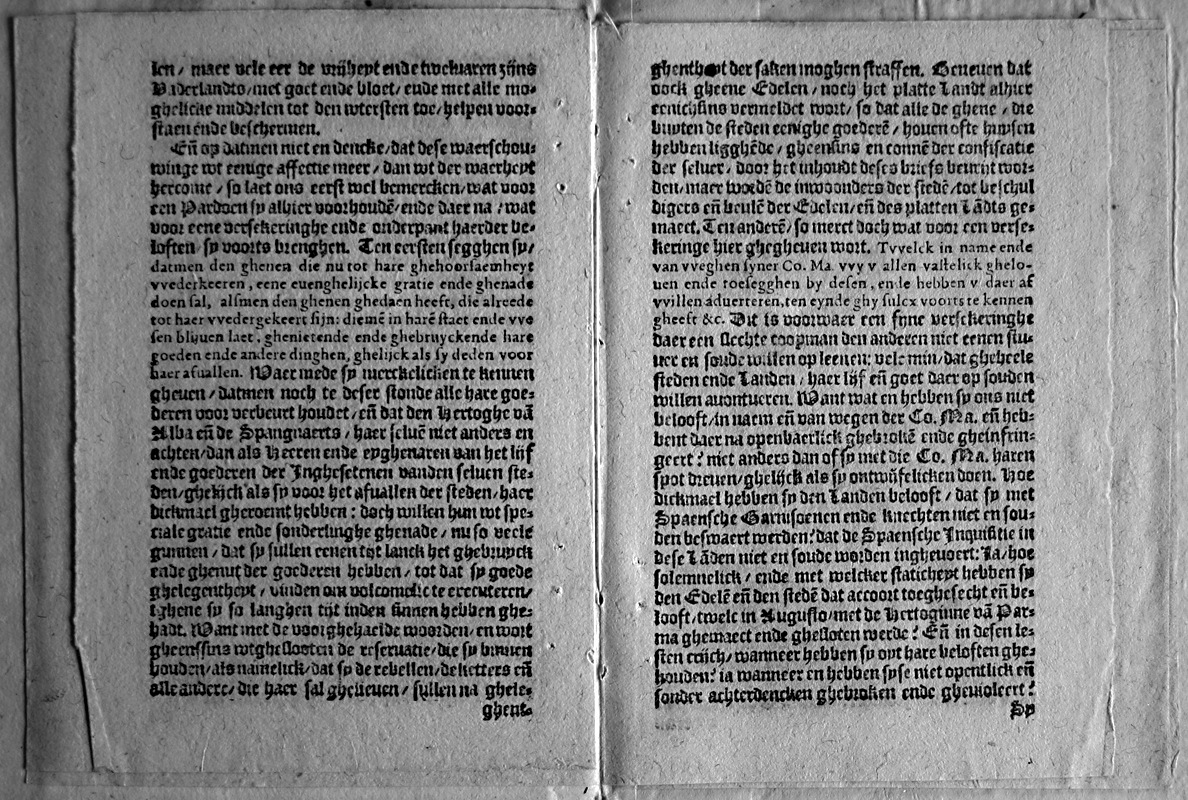 len/ maer vele eer de vrijheyt ende twelvaren zijns
Vaderlandts/met goet ende bloet/ ende met alle mo-
ghelicke middelen tot den wtersten toe/helpen voor-
staen ende beschermen.
Eñ op datmen niet en dencke/dat dese waerschou-
winge wt eenige affectie meer/ dan wt der waerheyt
hercome/ so laet ons eerst wel bemercken/wat voor
een Pardoen sy alhier voorhoudẽ/ende daer na/wat
voor eene versekeringhe ende onderpant haerder be-
loften sy voorts brenghen. Ten eersten segghen sy/
datmen den ghenen die nu tot hare ghehoorsaemheyt
vvederkeeren, eene euenghelijcke gratie ende ghenade
doen sal, alsmen den ghenen ghedaen heeft, die alreede
tot haer vvedergekeert sijn: diemẽ in harẽ staet ende vve
sen blijuen laet, ghenietende ende ghebruyckende hare
goeden ende andere dinghen, ghelijck als sy deden voor
haer afuallen. Waer mede sy merckelicken te kennen
gheuen/ datmen noch te deser stonde alle hare goe-
deren voor verbeurt houdet/ eñ dat den Hertoghe vã
Alba eñ de Spangnaerts/ haer seluẽ niet anders en
achten/dan als Heeren ende eyghenaren van het lijf
ende goederen der Inghesetenen vanden seluen ste-
den/ghelijck als sy voor het afuallen der steden/haer
dickmael gheroemt hebben: doch willen hun wt spe-
ciale gratie ende sonderlinghe ghenade/ nu so veele
gunnen/ dat sy sullen eenen tijt lanck het ghebruyck
ende ghenut der goederen hebben/ tot dat sy goede
ghelegentheyt/ vinden om volcomelic te executeren/
tghene sy so langhen tijt inden sinnen hebben ghe-
hadt. Want met de voorghehaelde woorden/en wort
gheenssins wtghesloten de reseruatie/die sy binnen
houden/als namelick/dat sy de rebellen/de ketters eñ
alle andere/ die haer sal ghelieuen/ sullen na ghele-
ghent-
ghentheyt der saken moghen straffen. Beneuen dat
oock gheene Edelen/ noch het platte Landt alhier
eenichsins vermeldet wort/ so dat alle de ghene/ die
buyten de steden eenighe goederẽ/ houen ofte huysen
hebben ligghẽde/ gheensins en connẽ der confiscatie
der seluer/ door het inhoudt deses briefs bevrijt wor-
den/maer wordẽ de inwoonders der stedẽ/tot beschul
digers eñ beulẽ der Edelen/eñ des platten Lãdts ge-
maect. Ten anderẽ/so merct doch wat voor een verse-
keringe hier ghegheuen wort. Tvvelck in name ende
van vveghen syner Co. Ma. vvy v allen vastelick ghelo-
uen ende toesegghen by desen, ende hebben v daer af
vvillen aduerteren, ten eynde ghy sulcx voorts te kennen
gheeft &c. Dit is voorwaer een fyne versekeringhe
daer een slechte coopman den anderen niet eenen stu-
uer en soude willen op leenen: vele min/dat gheheele
steden ende Landen/ haer lijf eñ goet daer op souden
willen auontueren. Want wat en hebben sy ons niet
belooft/in naem eñ van wegen der Co. Ma. eñ heb-
bent daer na openbaerlick ghebrokẽ ende gheinfrin-
geert? niet anders dan of sy met die Co. Ma. haren
spot dreuen/ghelijck als sy ontwijfelicken doen. Hoe
dickmael hebben sy den Landen belooft/ dat sy met
Spaensche Garnisoenen ende knechten niet en sou-
den beswaert werden? dat de Spaensche Inquisitie in
dese Lãden niet en soude worden ingheuoert: Ja/hoe
solemnelick/ ende met welcker staticheyt hebben sy
den Edelẽ eñ den stedẽ dat accoort toeghesecht eñ be-
looft/twelc in Augusto/met de Hertoginne vã Par-
ma ghemaect ende ghesloten werde? Eñ in desen le-
sten crijch/wanneer hebben sy oyt hare beloften ghe-
houden? ia wanneer en hebben syse niet opentlick eñ
sonder achterdencken ghebroken ende ghevioleert?
Sy